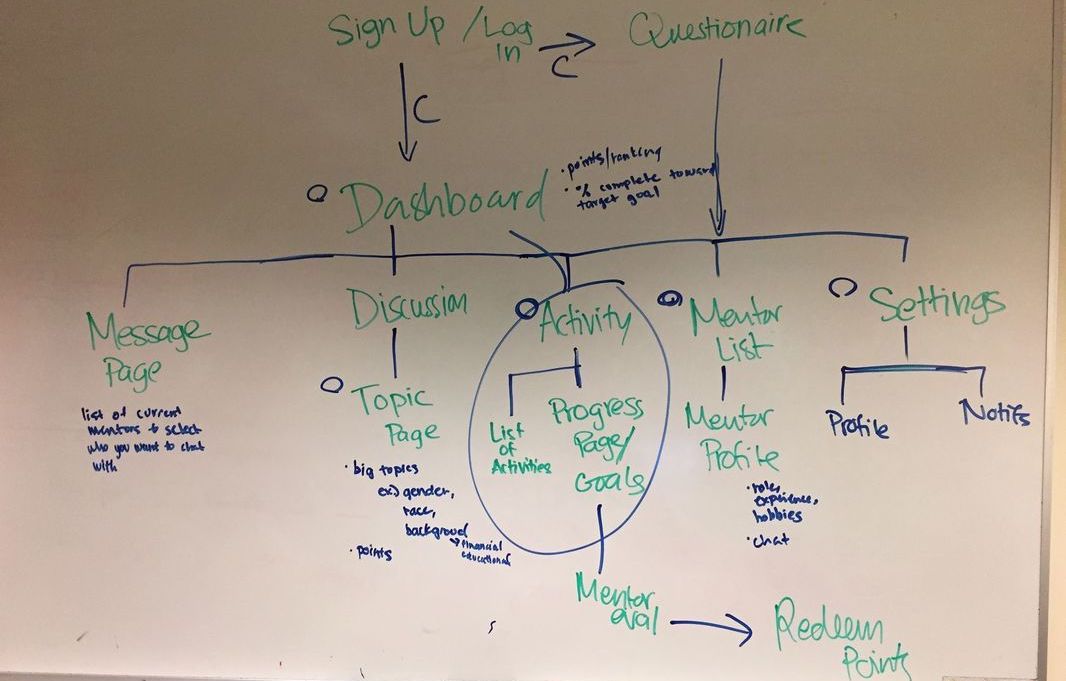 Sign Up / Log
In
C
Questionaire
C
Dashboard
• points/ranking
• % complete toward
target goal
Message
Page
list of current
mentors to select
who you want to chat
with
Discussion
Topic
Page
• big topics
ex) gender,
race,
backgroud
→ financial
educational
• points
Activity
List
of
Activities
Progress
Page/
Goals
Mentor
eval
Redeem
Points
Mentor
List
Mentor
Profile
• roles,
experience,
hobbies
• chat
Settings
Profile
Notifs